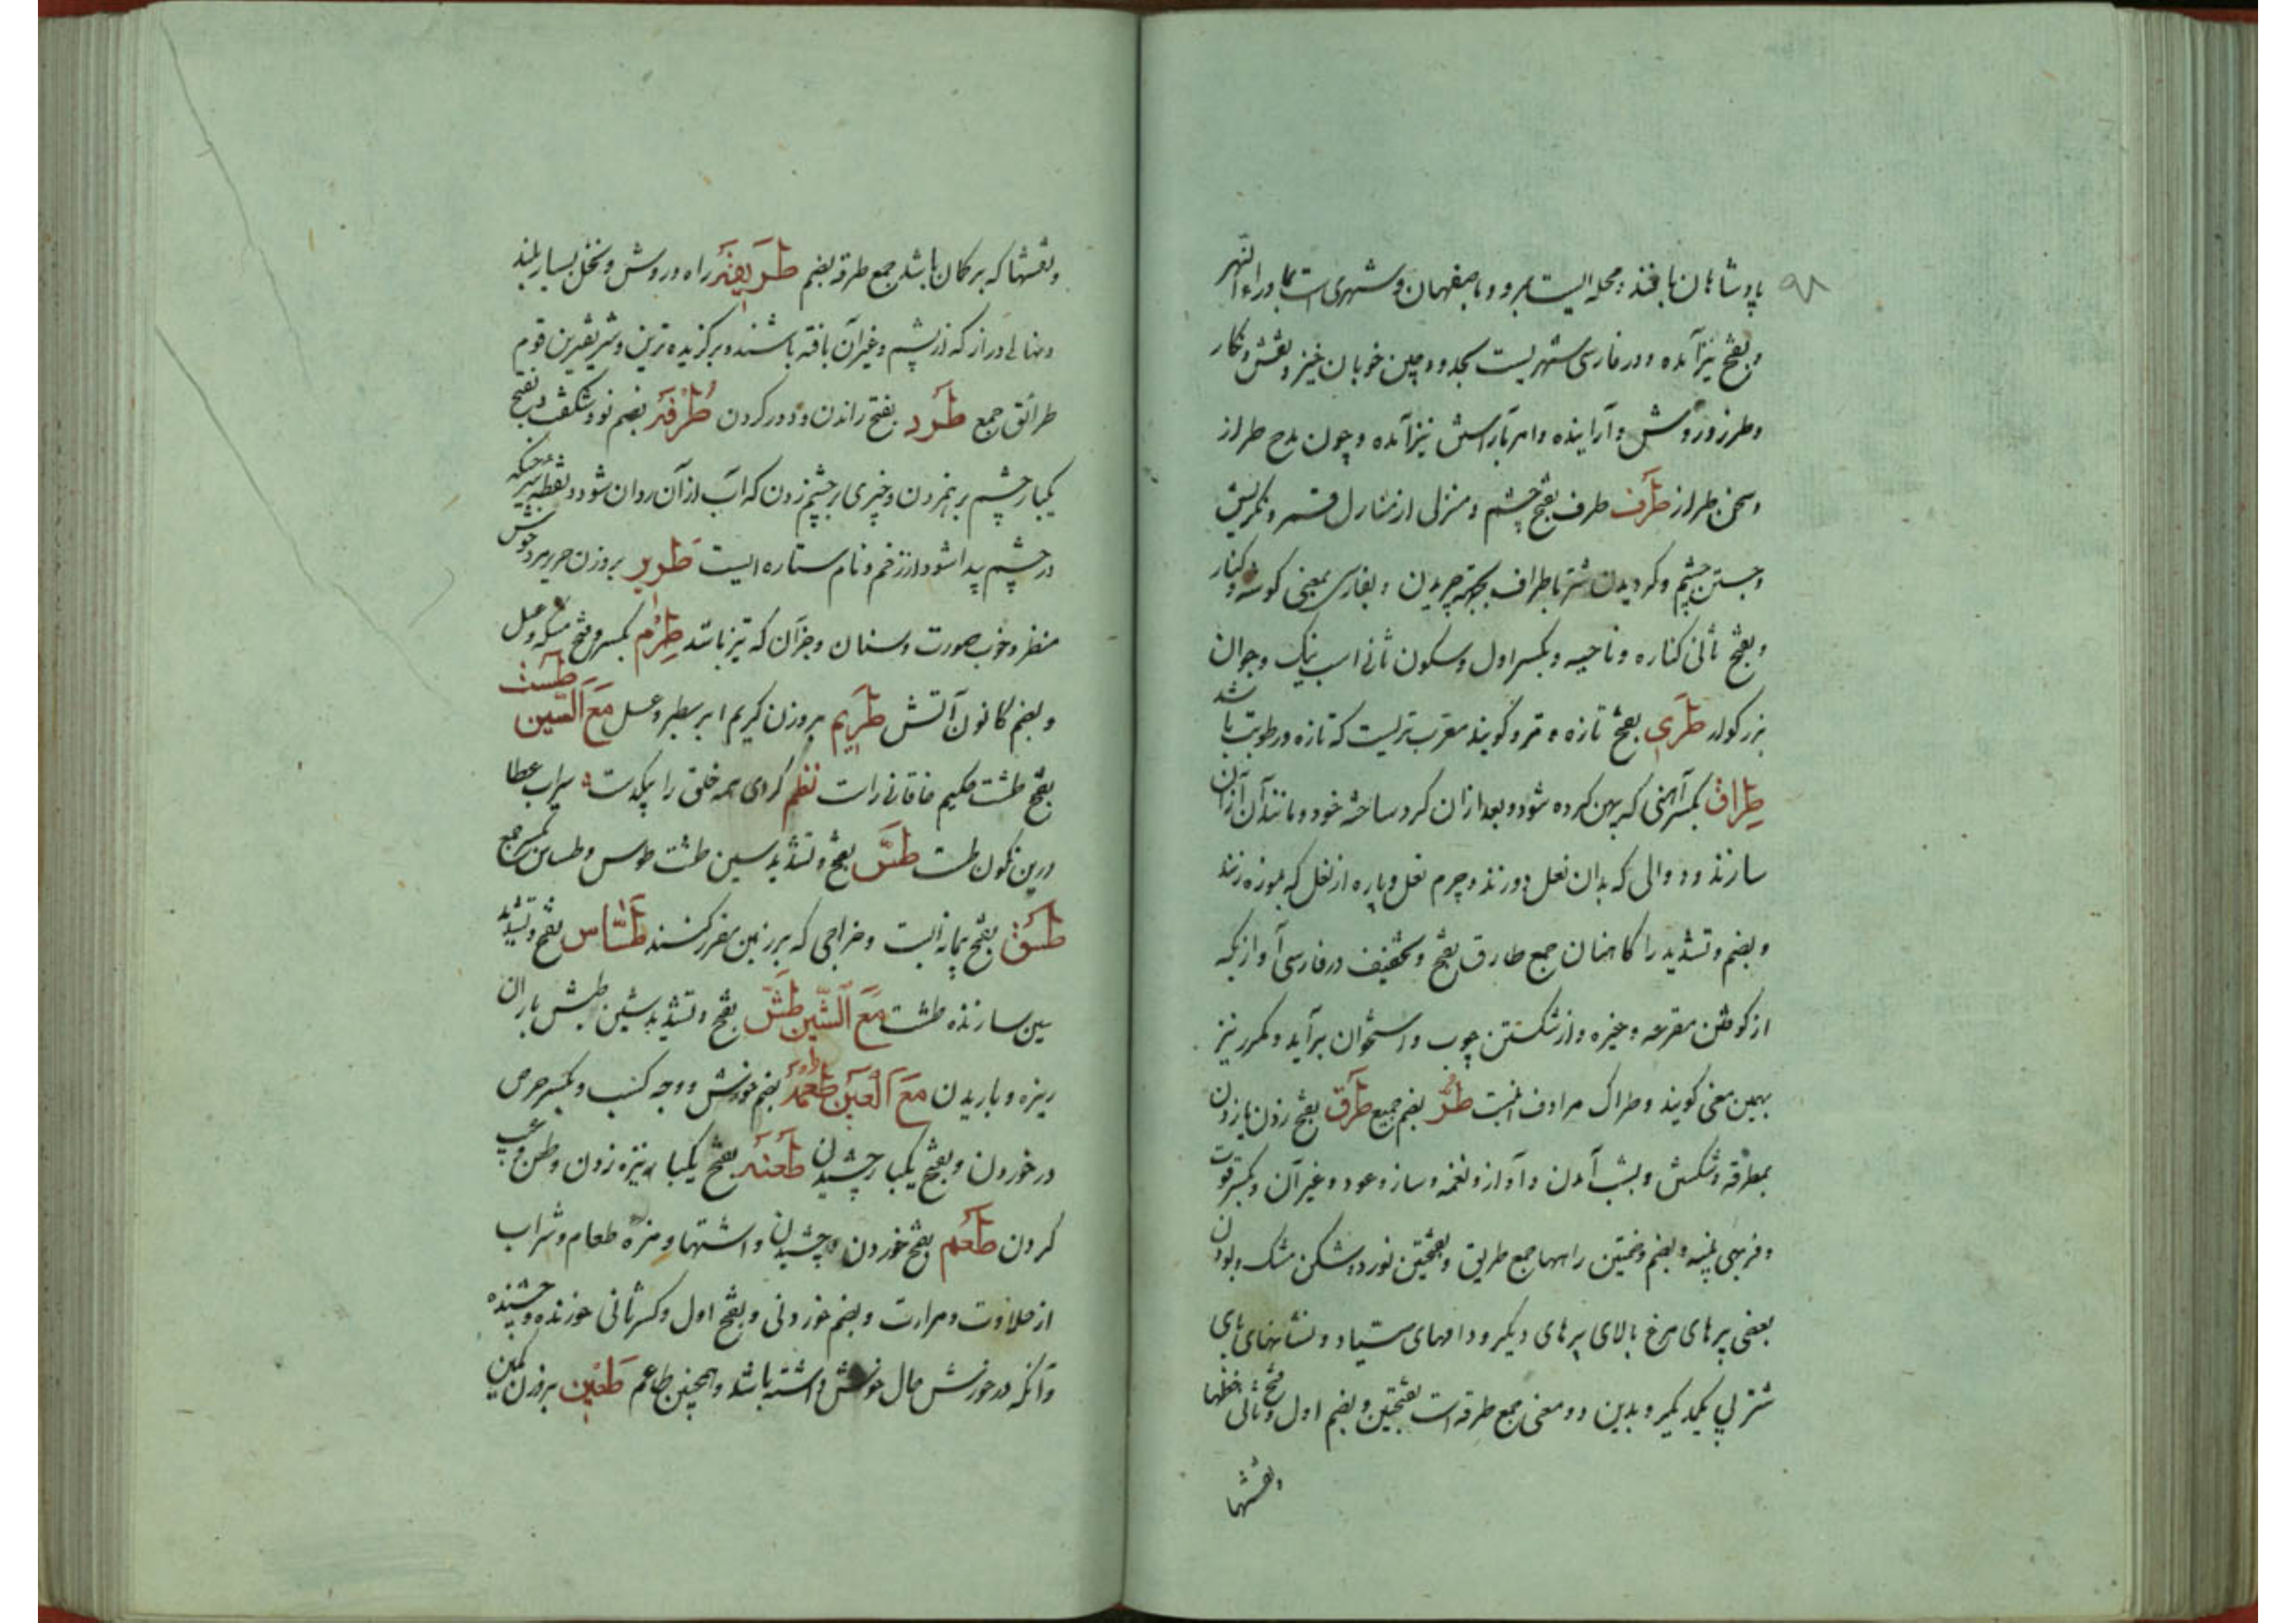 ۹۸
پادشاهان بافند و محله ایست بمرو و باصفهان و شهری است بماوراء النهر
و بفتح نیز آمده و در فارسی شهریست بحدود چین خوبان خیز و نقش و نکار
و طرز و روش و آراینده و امر بآراستن نیز آمده و چون مدح طراز
و سخن طراز طرف طرف بفتح چشم و منزلی از منازل قمر و نکریستن
و جستن چشم و کردیدن شتر باطراف بجهت چریدن و بفارسی بمعنی کوشه و کنار
و بفتح ثانی کناره و ناحیه و بکسر اول و سکون ثانی اسب نیک و جوان
بزرکوار طری بفتح تازه و تر و کویند معرب تریست که تازه و رطوبت باشد
طراق بکسر آهنی که پهن کرده شود و بعد از ان کرد ساخته خود و مانند آن ازان
سازند و دوالی که بدان نعل دوزند و چرم نعل و پاره از نعل که بموزه زنند
و بضم و تشدید را کاهنان جمع طارق بفتح و تخفیف در فارسی آوازیکه
از کوفتن مقرعه و غیره و از شکستن چوب و استخوان برآید و مکرر نیز
بهمین معنی کویند و طراک مرادف انست طر بضم جمیع طرق بفتح زدن یا زدن
بمطرقه و شکستن و بشب آمدن و آواز و نغمه و ساز و عود و غیر آن و بکسر قوت
و فربهی پیه و بضم و ضمتین راهها جمع طریق و بفتحتین نورد و شکن مشک و بودن
بعضی پرهای مرغ بالای پرهای دیکر و دامهای صیاد و نشانهای پای
شتر پی یکدیکر و بدین دو معنی جمع طرقه است بفتحتین و بضم اول و فتح ثانی خطها
و نقشها
و نقشها که بر کمان باشد جمع طرقه بضم طریقه راه و روش و نخل بسیار بلند
و نهالی دراز که از پشم و غیر آن بافته باشند و برکزیده ترین و شریفترین قوم
طرائق جمع طرد بفتح راندن و دور کردن طرفه بضم نو و شکفت و بفتح
یکبار چشم برهم زدن و چیزی بر چشم زدن که آب از آن روان شود و نقطه سرخ که
در چشم پیدا شود از زخم و نام ستاره ایست طریر بروزن حریر مرد خوش
منظر و خوب صورت و سنان و جز آن که تیز باشد طرم بکسر و فتح مسکه و عسل
و بضم کانون آتش طریم بروزن کریم ابر سطبر و عسل مع السین طست
بفتح طشت حکیم خاقانی راست نظم کردی همه خلق را بیکدست سیراب عطا
درین نکون طست طس بفتح و تشدید سین طشت طوس و طساس بکسر جمع
طسق بفتح پیمانه ایست و خراجی که بر زمین مقرر کنند طساس بفتح و تشدید
سین سازنده طشت مع الشین طش بفتح و تشدید شین طشش باران
ریزه و باریدن مع العین طعمه بضم خورش و وجه کسب و بکسر حرص
در خوردن و بفتح یکبار چشیدن طعنه بفتح یکبار نیزه زدن و طعن و عیب
کردن طعم بفتح خوردن و چشیدن و اشتها و مزه طعام و شراب
از حلاوت و مرارت و بضم خوردنی و بفتح اول و کسر ثانی خورنده و چشنده
و آنکه در خورش حال خوش داشته باشد و همچنین طاعم طعین بروزن کمین